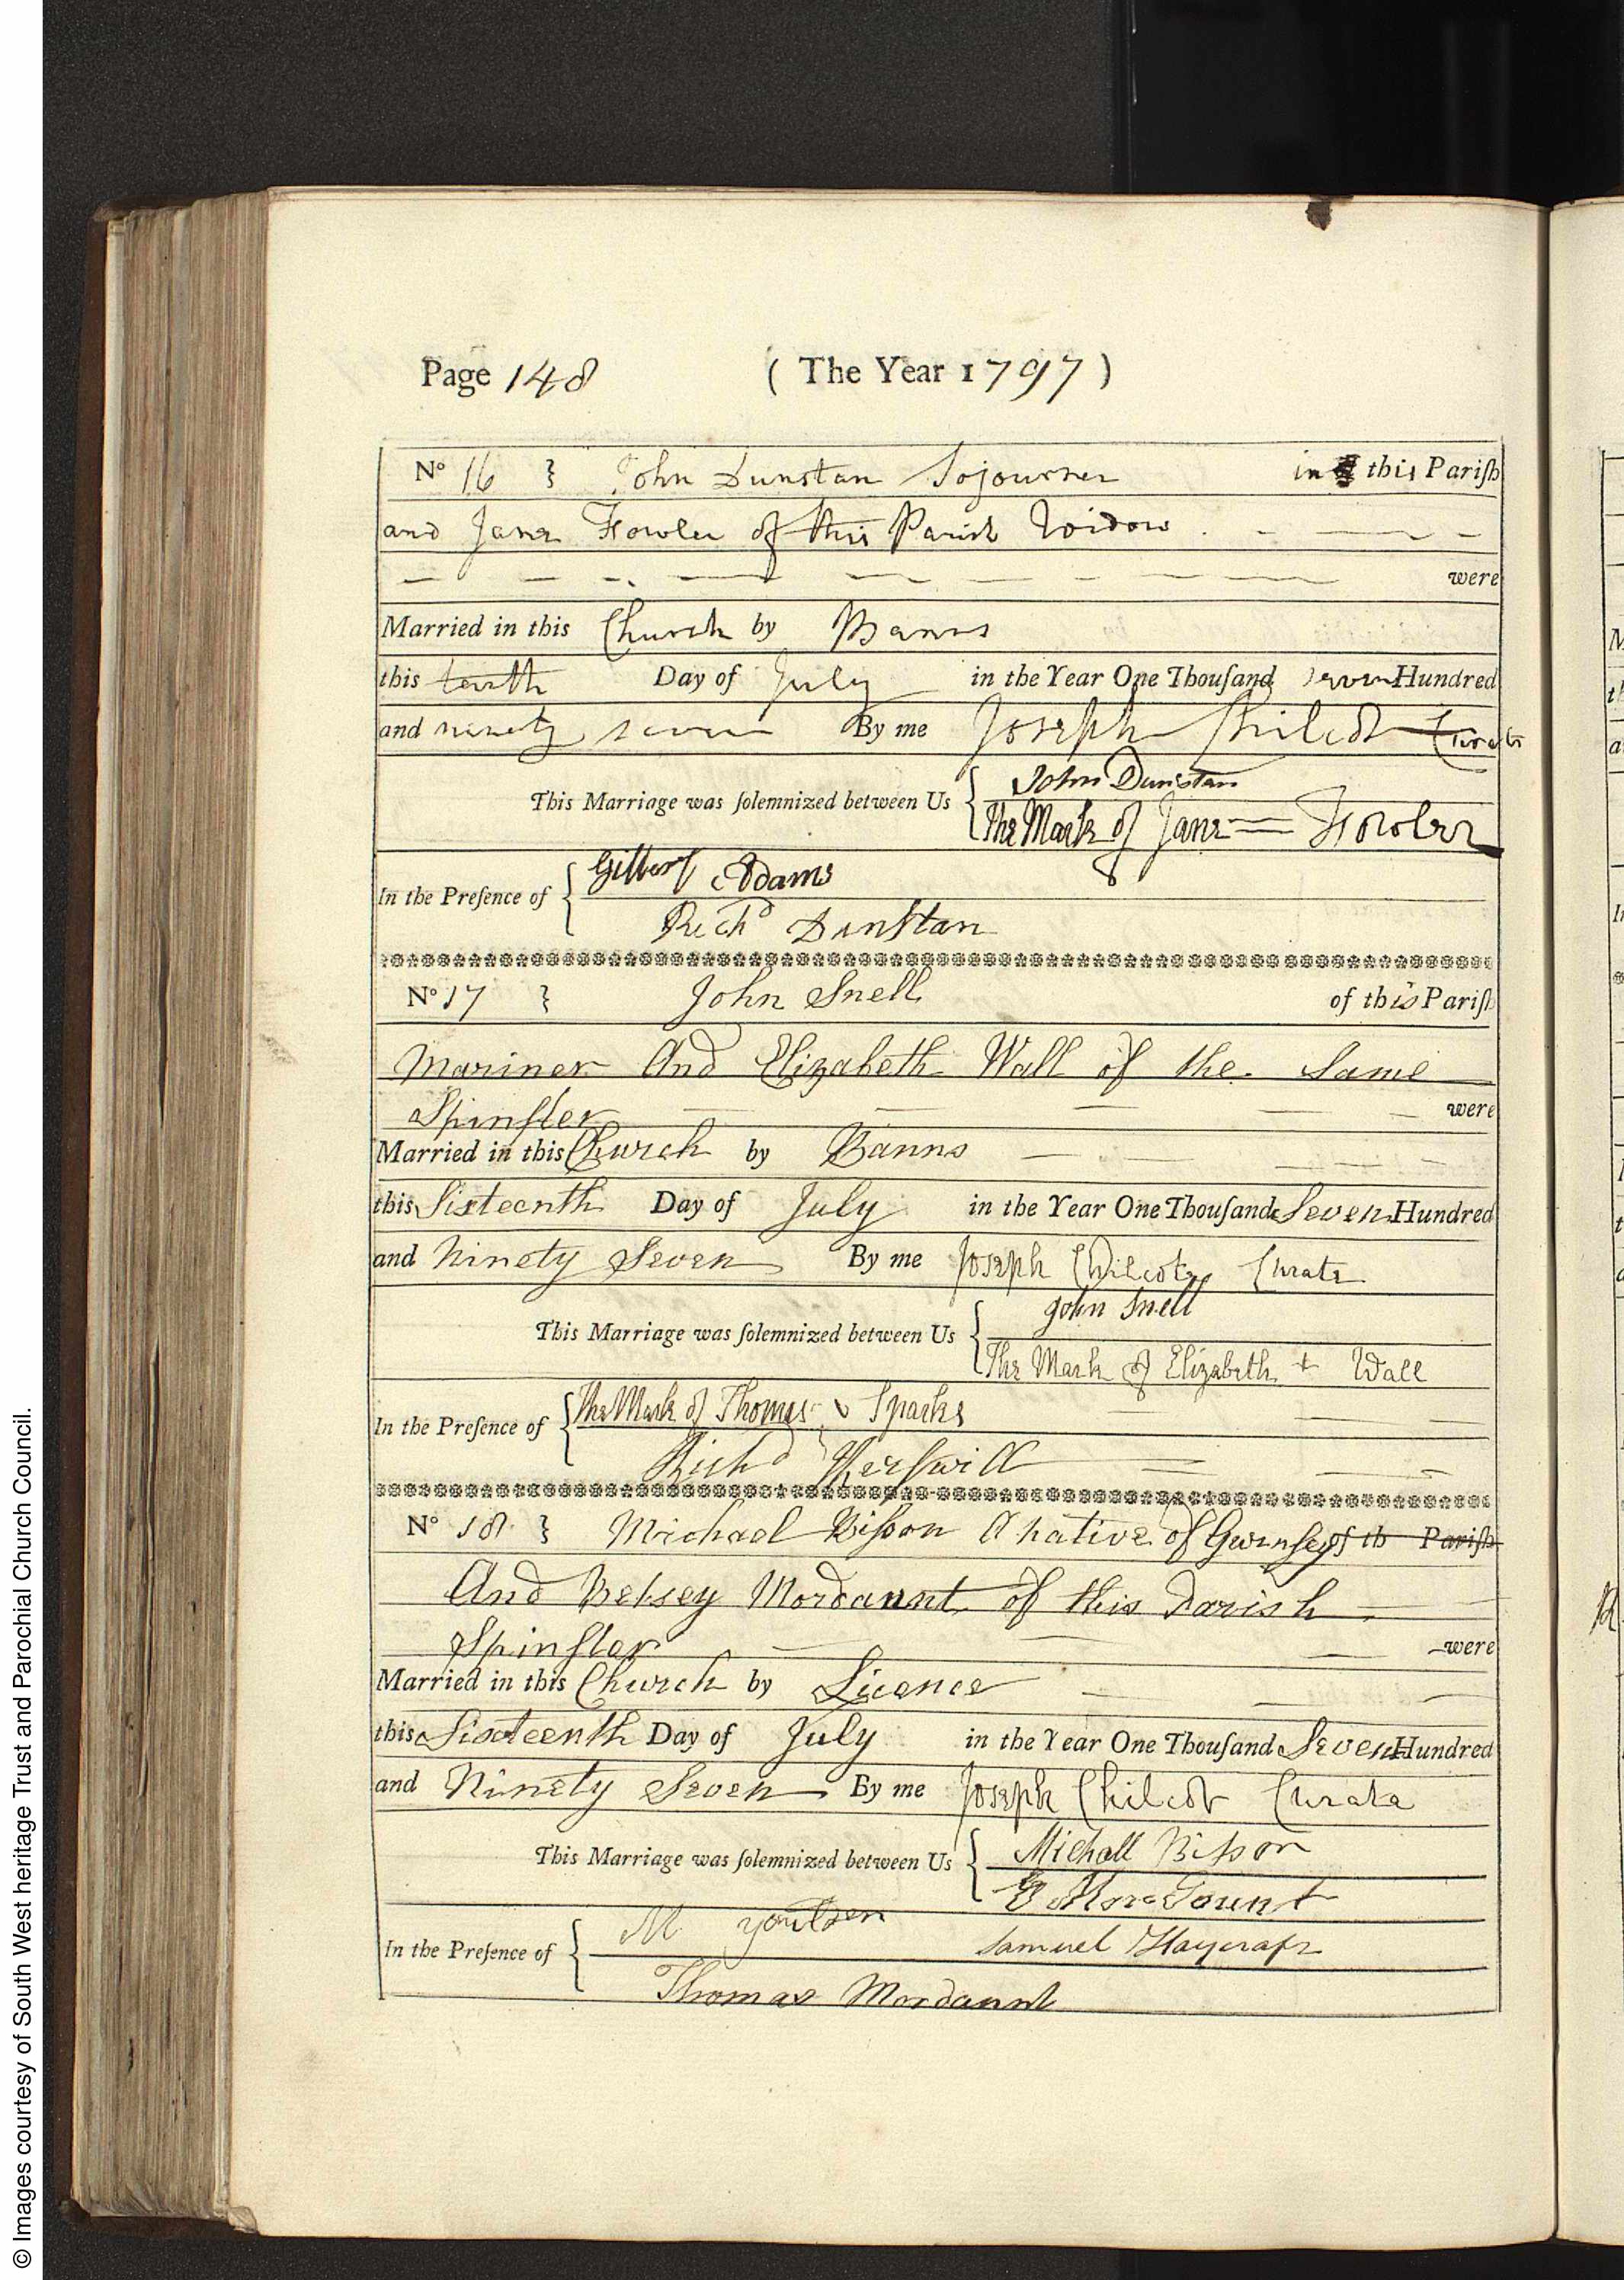 Page 148 ( The Year 1797 )
No 16 } John Dunstan Sojourner in this Parish
and Jane Fowler of this Parish Widow
were
Married in this Church by Banns
this tenth Day of July in the Year One Thousand seven Hundred
and ninety seven By me Joseph Chilcott Curate
This Marriage was solemnized between Us { John Dunstan
The Mark of Jane Fowler
In the Presence of { Gilbert Adams
Richd Dunstan
No 17 } John Snell of this Parish
Mariner And Elizabeth Wall of the Same
Spinster were
Married in this Church by Banns
this Sixteenth Day of July in the Year One Thousand Seven Hundred
and Ninety Seven By me Joseph Chilcott Curate
This Marriage was solemnized between Us { John Snell
The Mark of Elizabeth + Wall
In the Presence of { The Mark of Thomas Sparks
Richd Kerswill
No 18 } Michael Bisson A native of Guernsey of th Parish
And Betsey Mordaunt of this Parish
Spinster were
Married in this Church by Licence
this Sixteenth Day of July in the Year One Thousand Seven Hundred
and Ninety Seven By me Joseph Chilcott Curate
This Marriage was solemnized between Us { Michall Bisson
E Mordaunt
In the Presence of { M Samuel Haycraft
Thomas Mordaunt
© Images courtesy of South West heritage Trust and Parochial Church Council.